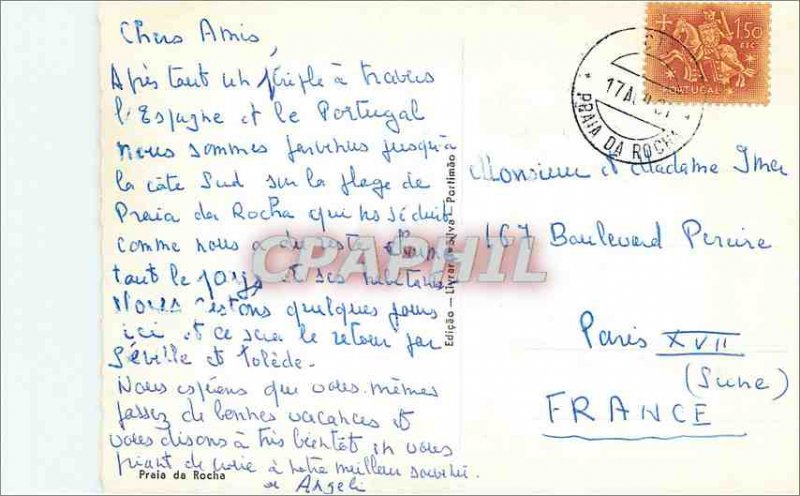 Chers Amis,
Après tout un périple à travers
l'Espagne et le Portugal
nous sommes parvenus jusqu'à
la côte Sud sur la plage de
Praia da Rocha qui ns séduit
comme nous a du reste
tout le pays et ses habitants
Nous restons quelques jours
ici et ce sera le retour par
Séville et Tolède.
Nous espérons que vous-mêmes
passez de bonnes vacances et
vous disons à très bientôt en vous
priant de croire à notre meilleur souvenir.
Praia da Rocha
Edição - Livraria Silva - Portimão
1$50
ESC.
PORTUGAL
17
PRAIA DA ROCHA
Monsieur et Madame
167 Boulevard Pereire
Paris XVII
(Seine)
FRANCE
CPAPHIL